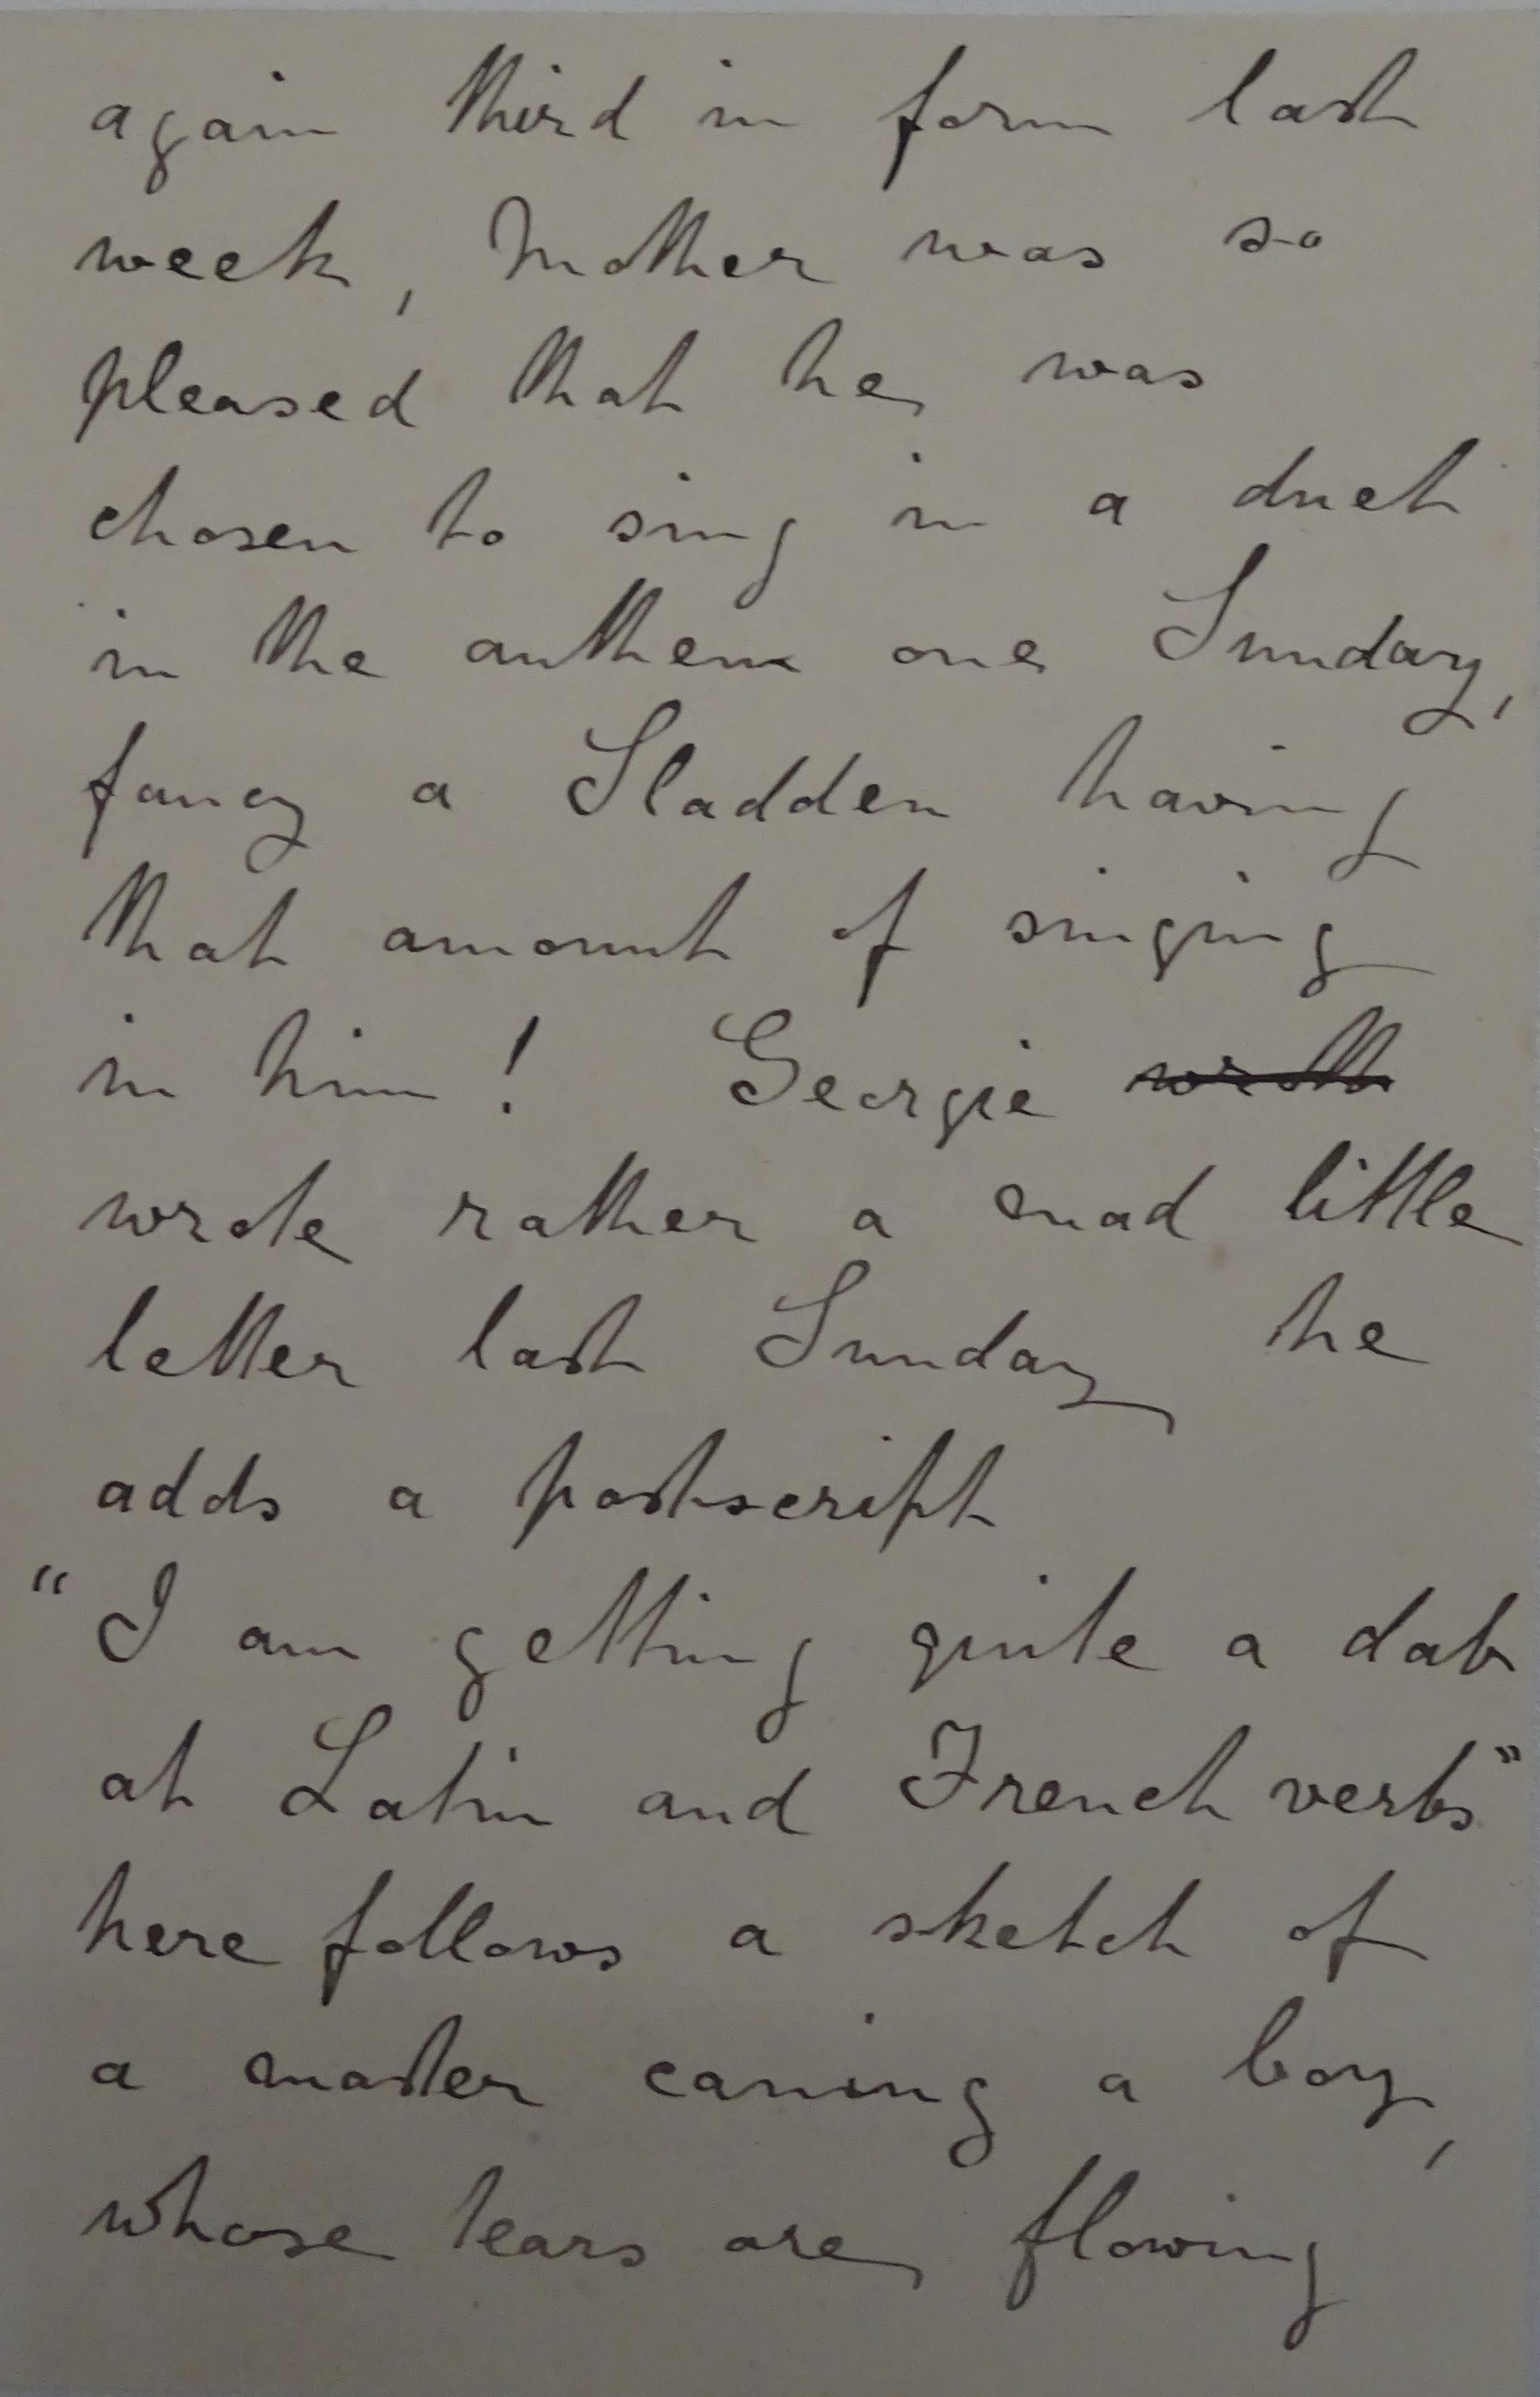 again third in form last
week, Mother was so
pleased that he was
chosen to sing in a duet
in the anthem one Sunday,
fancy a Sladden having
that amount of singing
in him! Georgie
wrote rather a mad little
letter last Sunday he
adds a postscript
"I am getting quite a dab
at Latin and French verbs"
here follows a sketch of
a master caning a boy,
whose tears are flowing